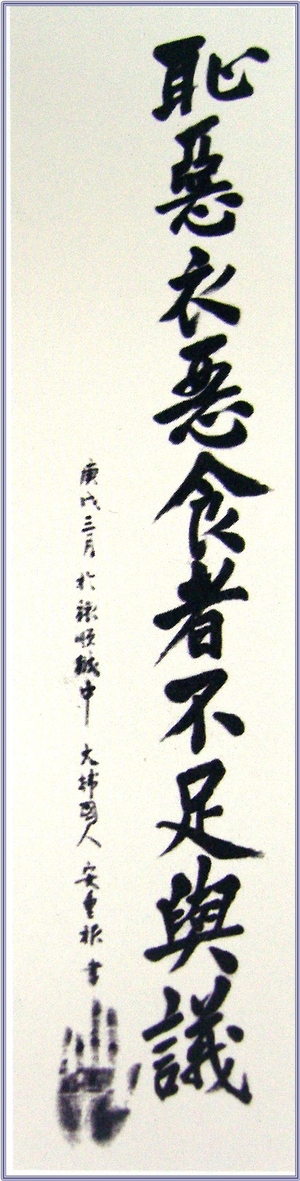 恥惡衣惡食者不足與議
庚戌三月 於旅順獄中 大韓國人 安重根 書